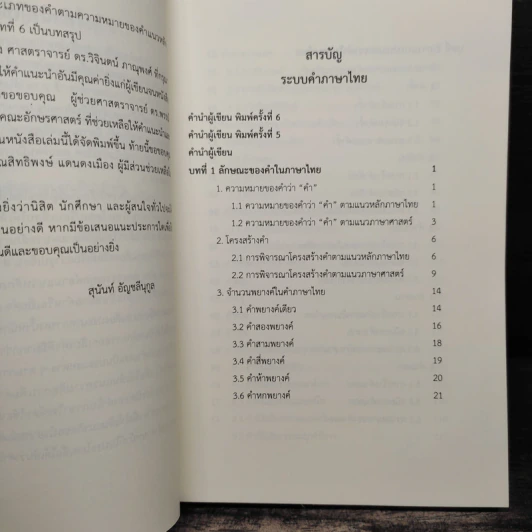 ะเภทของคำตามความหมายของคำแนวหลัก
ที่ 6 เป็นบทสรุป
ง ศาสตราจารย์ ดร.วิจินตน์ ภาณุพงศ์
ให้คำแนะนำอันมีคุณค่ายิ่งแก่ผู้เขียนจนหนังสือ
ขอขอบคุณ ผู้ช่วยศาสตราจารย์
คณะอักษรศาสตร์ ที่ช่วยเหลือให้คำแนะนำ
นหนังสือเล่มนี้ได้จัดพิมพ์ขึ้น ท้ายนี้ขอขอบคุณ
ณสิทธิพงษ์ แดนดงเมือง ผู้มีส่วนช่วย
ยิ่งว่านิสิต นักศึกษา และผู้สนใจทั่วไป
นอย่างดี หากมีข้อเสนอแนะประการใด
นดีและขอบคุณเป็นอย่างยิ่ง
สุนันท์ อัญชลีนุกูล
สารบัญ
ระบบคำภาษาไทย
คำนำผู้เขียน พิมพ์ครั้งที่ 6
คำนำผู้เขียน พิมพ์ครั้งที่ 5
คำนำผู้เขียน
บทที่ 1 ลักษณะของคำในภาษาไทย 1
1. ความหมายของคำว่า "คำ" 1
1.1 ความหมายของคำว่า "คำ" ตามแนวหลักภาษาไทย 1
1.2 ความหมายของคำว่า "คำ" ตามแนวภาษาศาสตร์ 3
2. โครงสร้างคำ 6
2.1 การพิจารณาโครงสร้างคำตามแนวหลักภาษาไทย 6
2.2 การพิจารณาโครงสร้างคำตามแนวภาษาศาสตร์ 9
3. จำนวนพยางค์ในคำภาษาไทย 14
3.1 คำพยางค์เดียว 14
3.2 คำสองพยางค์ 16
3.3 คำสามพยางค์ 18
3.4 คำสี่พยางค์ 19
3.5 คำห้าพยางค์ 20
3.6 คำหกพยางค์ 21